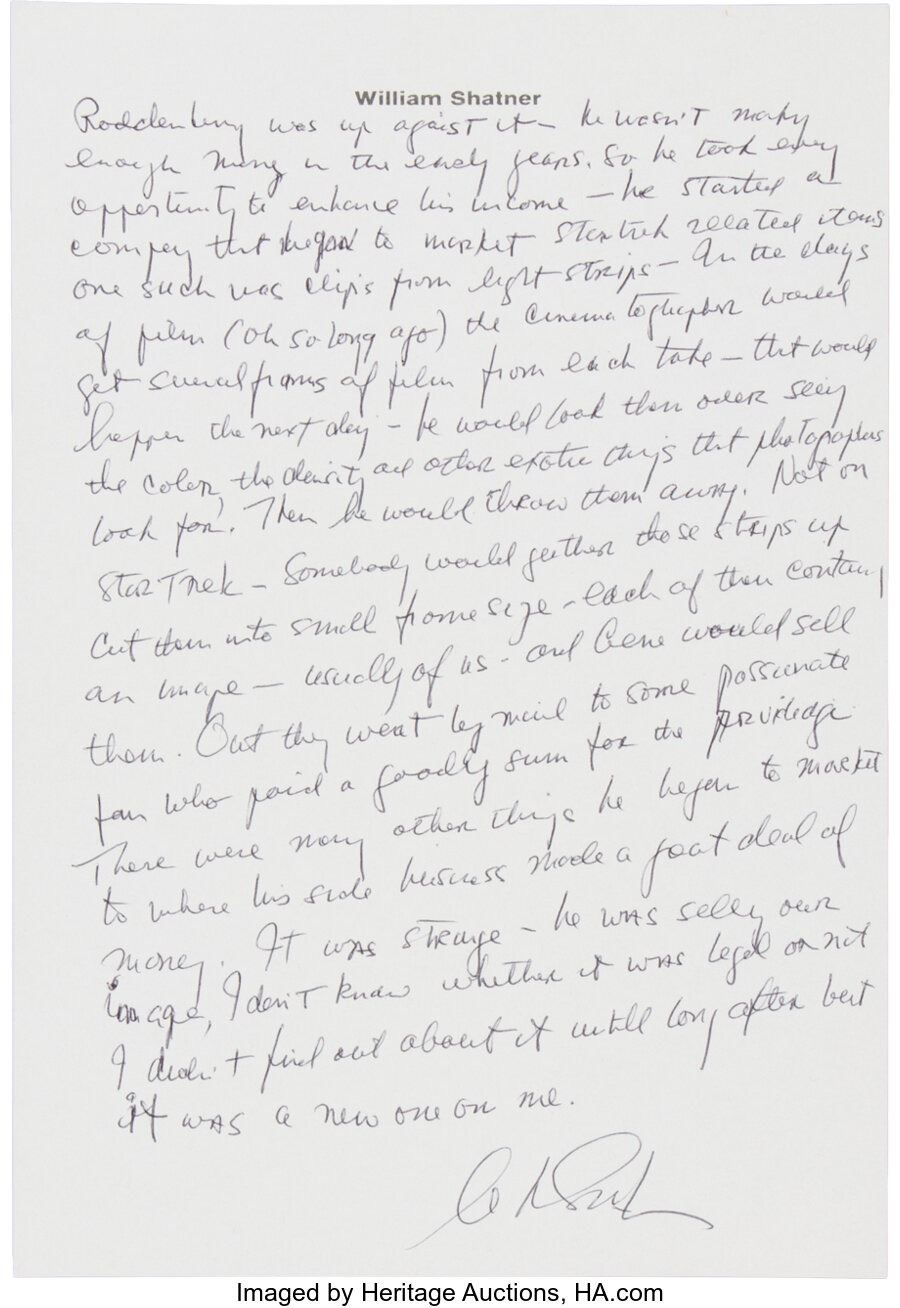 William Shatner
Roddenberry was up against it – he wasn't making
enough money in the early years. So he took every
opportunity to enhance his income – he started a
company that began to market Startrek related items
one such was clips from light strips – In the days
of film (oh so long ago) the cinematographer would
get several frames of film from each take – that would
happen the next day – he would look them over seeing
the color, the density and other exotic things that photographers
look for. Then he would throw them away. Not on
Star Trek – Somebody would gather those strips up
cut them into small frame size – each of them containing
an image – usually of us – and Gene would sell
them. Out they went by mail to some passionate
fan who paid a goodly sum for the priviledge
There were many other things he began to market
to where his side business made a great deal of
money. It was strange – he was selling our
image, I don't know whether it was legal or not
I didn't find out about it until long after but
it was a new one on me.
Imaged by Heritage Auctions, HA.com